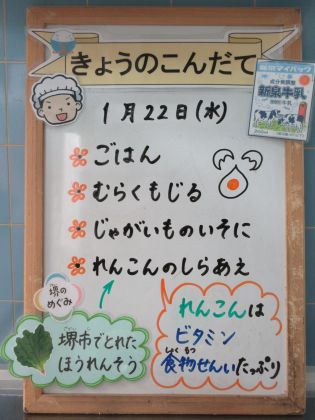 きょうのこんだて
1月22日(水)
ごはん
むらくもじる
じゃがいものいそに
れんこんのしらあえ
新泉マイパック
成分無調整
新泉牛乳
堺の
めぐみ
堺市でとれた
ほうれんそう
れんこんは
ビタミン
しょくもつ
食物せんいたっぷり